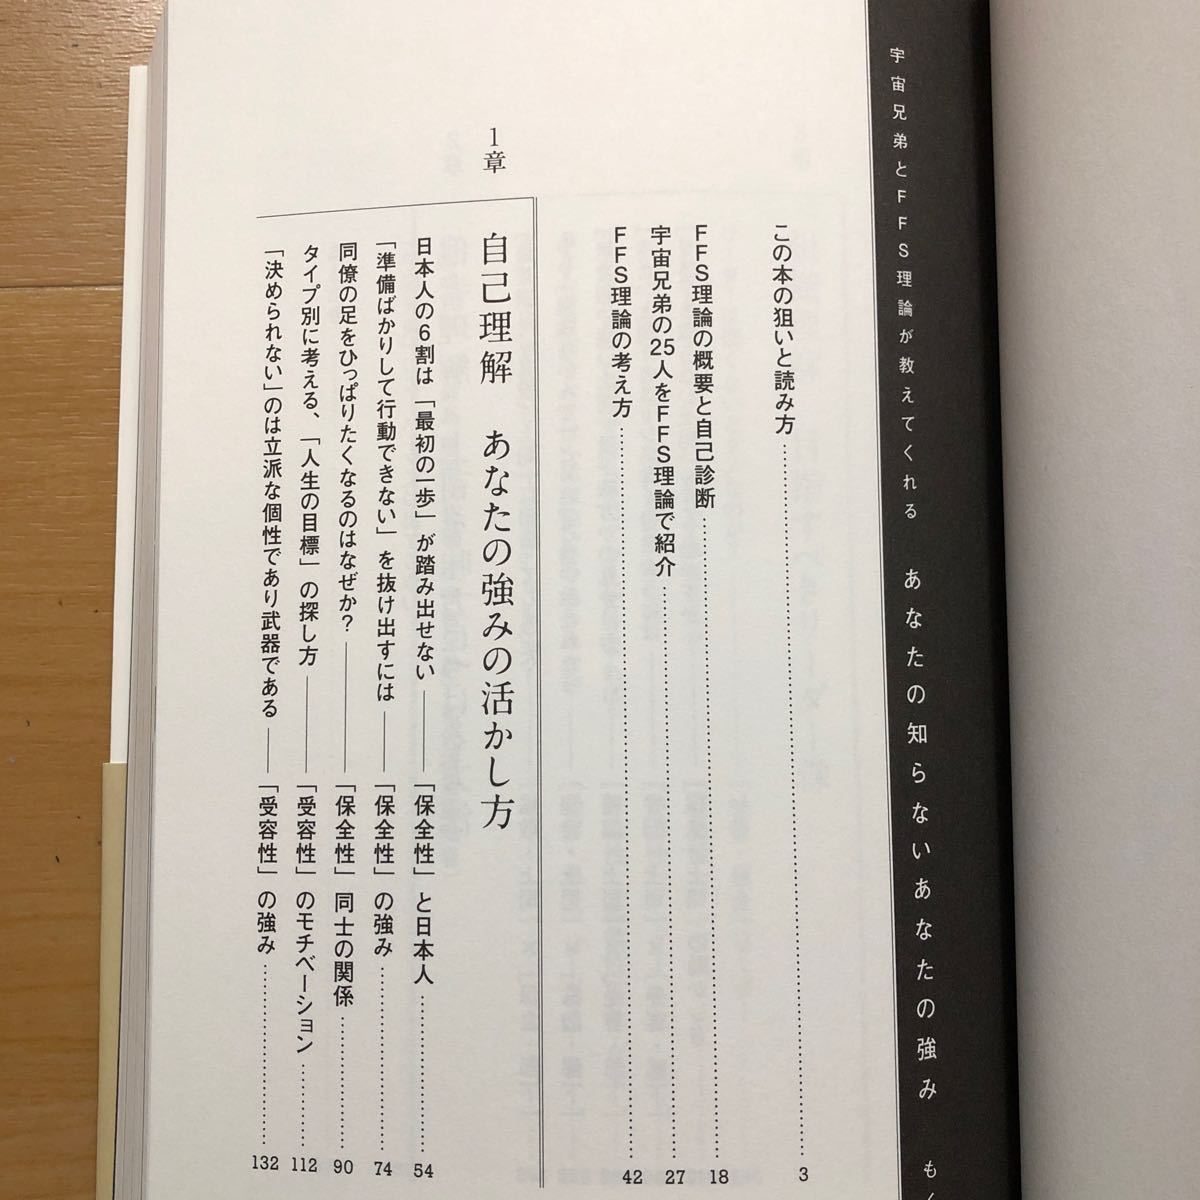 宇宙兄弟とFFS理論が教えてくれる あなたの知らないあなたの強み も
この本の狙いと読み方……3
FFS理論の概要と自己診断……18
宇宙兄弟の25人をFFS理論で紹介……27
FFS理論の考え方……42
1章 自己理解 あなたの強みの活かし方
日本人の6割は「最初の一歩」が踏み出せない——「保全性」と日本人……54
「準備ばかりして行動できない」を抜け出すには——「保全性」の強み……74
同僚の足をひっぱりたくなるのはなぜか?——「保全性」同士の関係……90
タイプ別に考える、「人生の目標」の探し方——「受容性」のモチベーション……112
「決められない」のは立派な個性であり武器である——「受容性」の強み……132